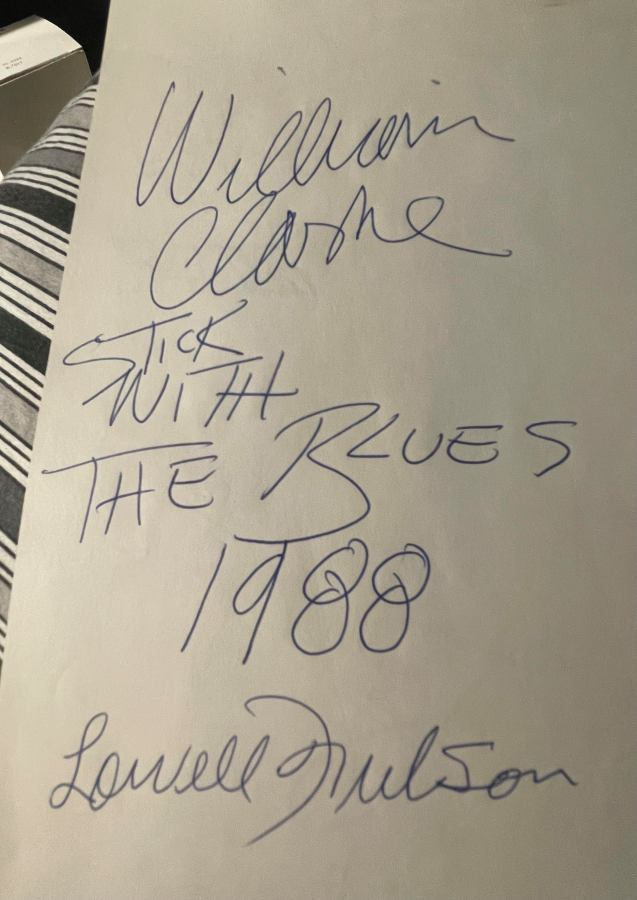 William
Clarke
STICK
WITH
THE BLUES
1988
Lowell Fulson